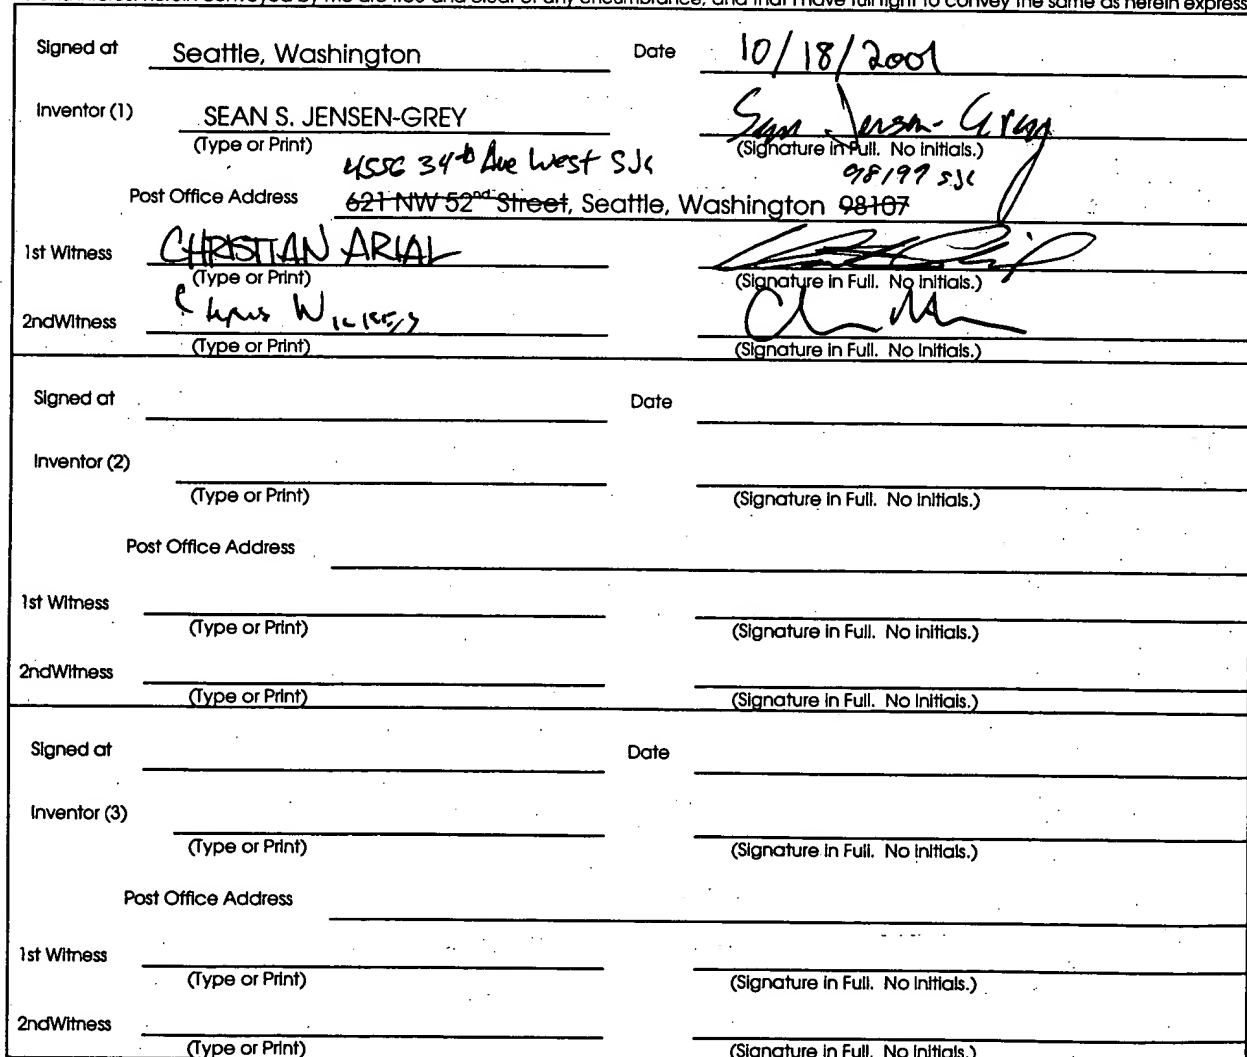 and clear of any encumbrance, and that I have full right to convey the same as herein express
Signed at Seattle, Washington Date 10/18/2001
Inventor (1) SEAN S. JENSEN-GREY Sean Jensen-Grey
(Type or Print) (Signature in Full. No initials.)
4556 34th Ave West SJG 98199 SJG
Post Office Address 621 NW 52nd Street, Seattle, Washington 98107
1st Witness CHRISTIAN ARIAL
(Type or Print) (Signature in Full. No initials.)
2ndWitness Chris
(Type or Print) (Signature in Full. No initials.)
Signed at Date
Inventor (2)
(Type or Print) (Signature in Full. No initials.)
Post Office Address
1st Witness
(Type or Print) (Signature in Full. No initials.)
2ndWitness
(Type or Print) (Signature in Full. No initials.)
Signed at Date
Inventor (3)
(Type or Print) (Signature in Full. No initials.)
Post Office Address
1st Witness
(Type or Print) (Signature in Full. No initials.)
2ndWitness
(Type or Print) (Signature in Full. No initials.)